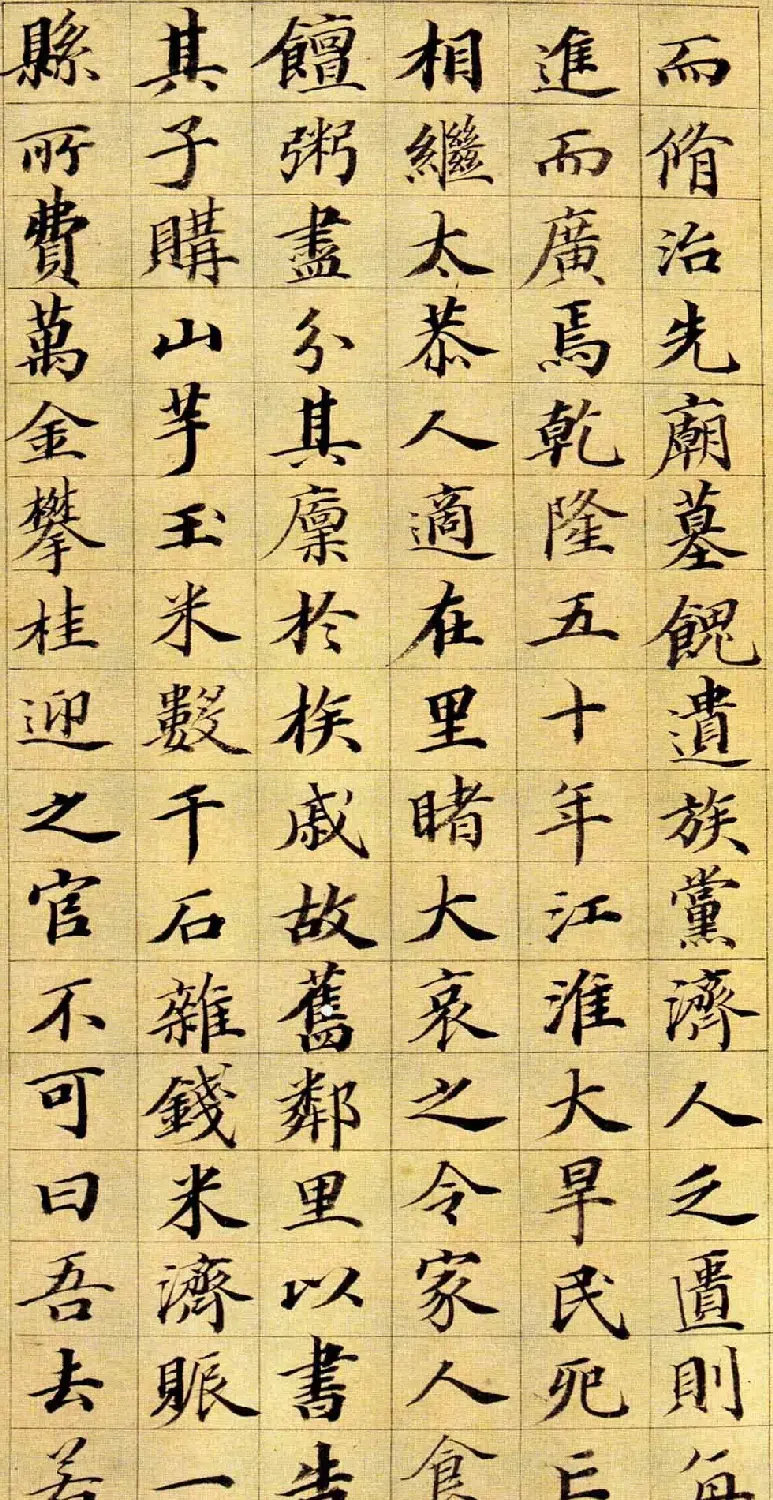 而脩治先廟墓餽遺族黨濟人之匱則每
進而廣焉乾隆五十年江淮大旱民死亡
相繼太恭人適在里睹大哀之令家人食
饘粥盡分其廩於族戚故舊鄰里以書告
其子購山芋玉米數千石雜錢米濟賑一
縣所費萬金攀桂迎之官不可曰吾去若